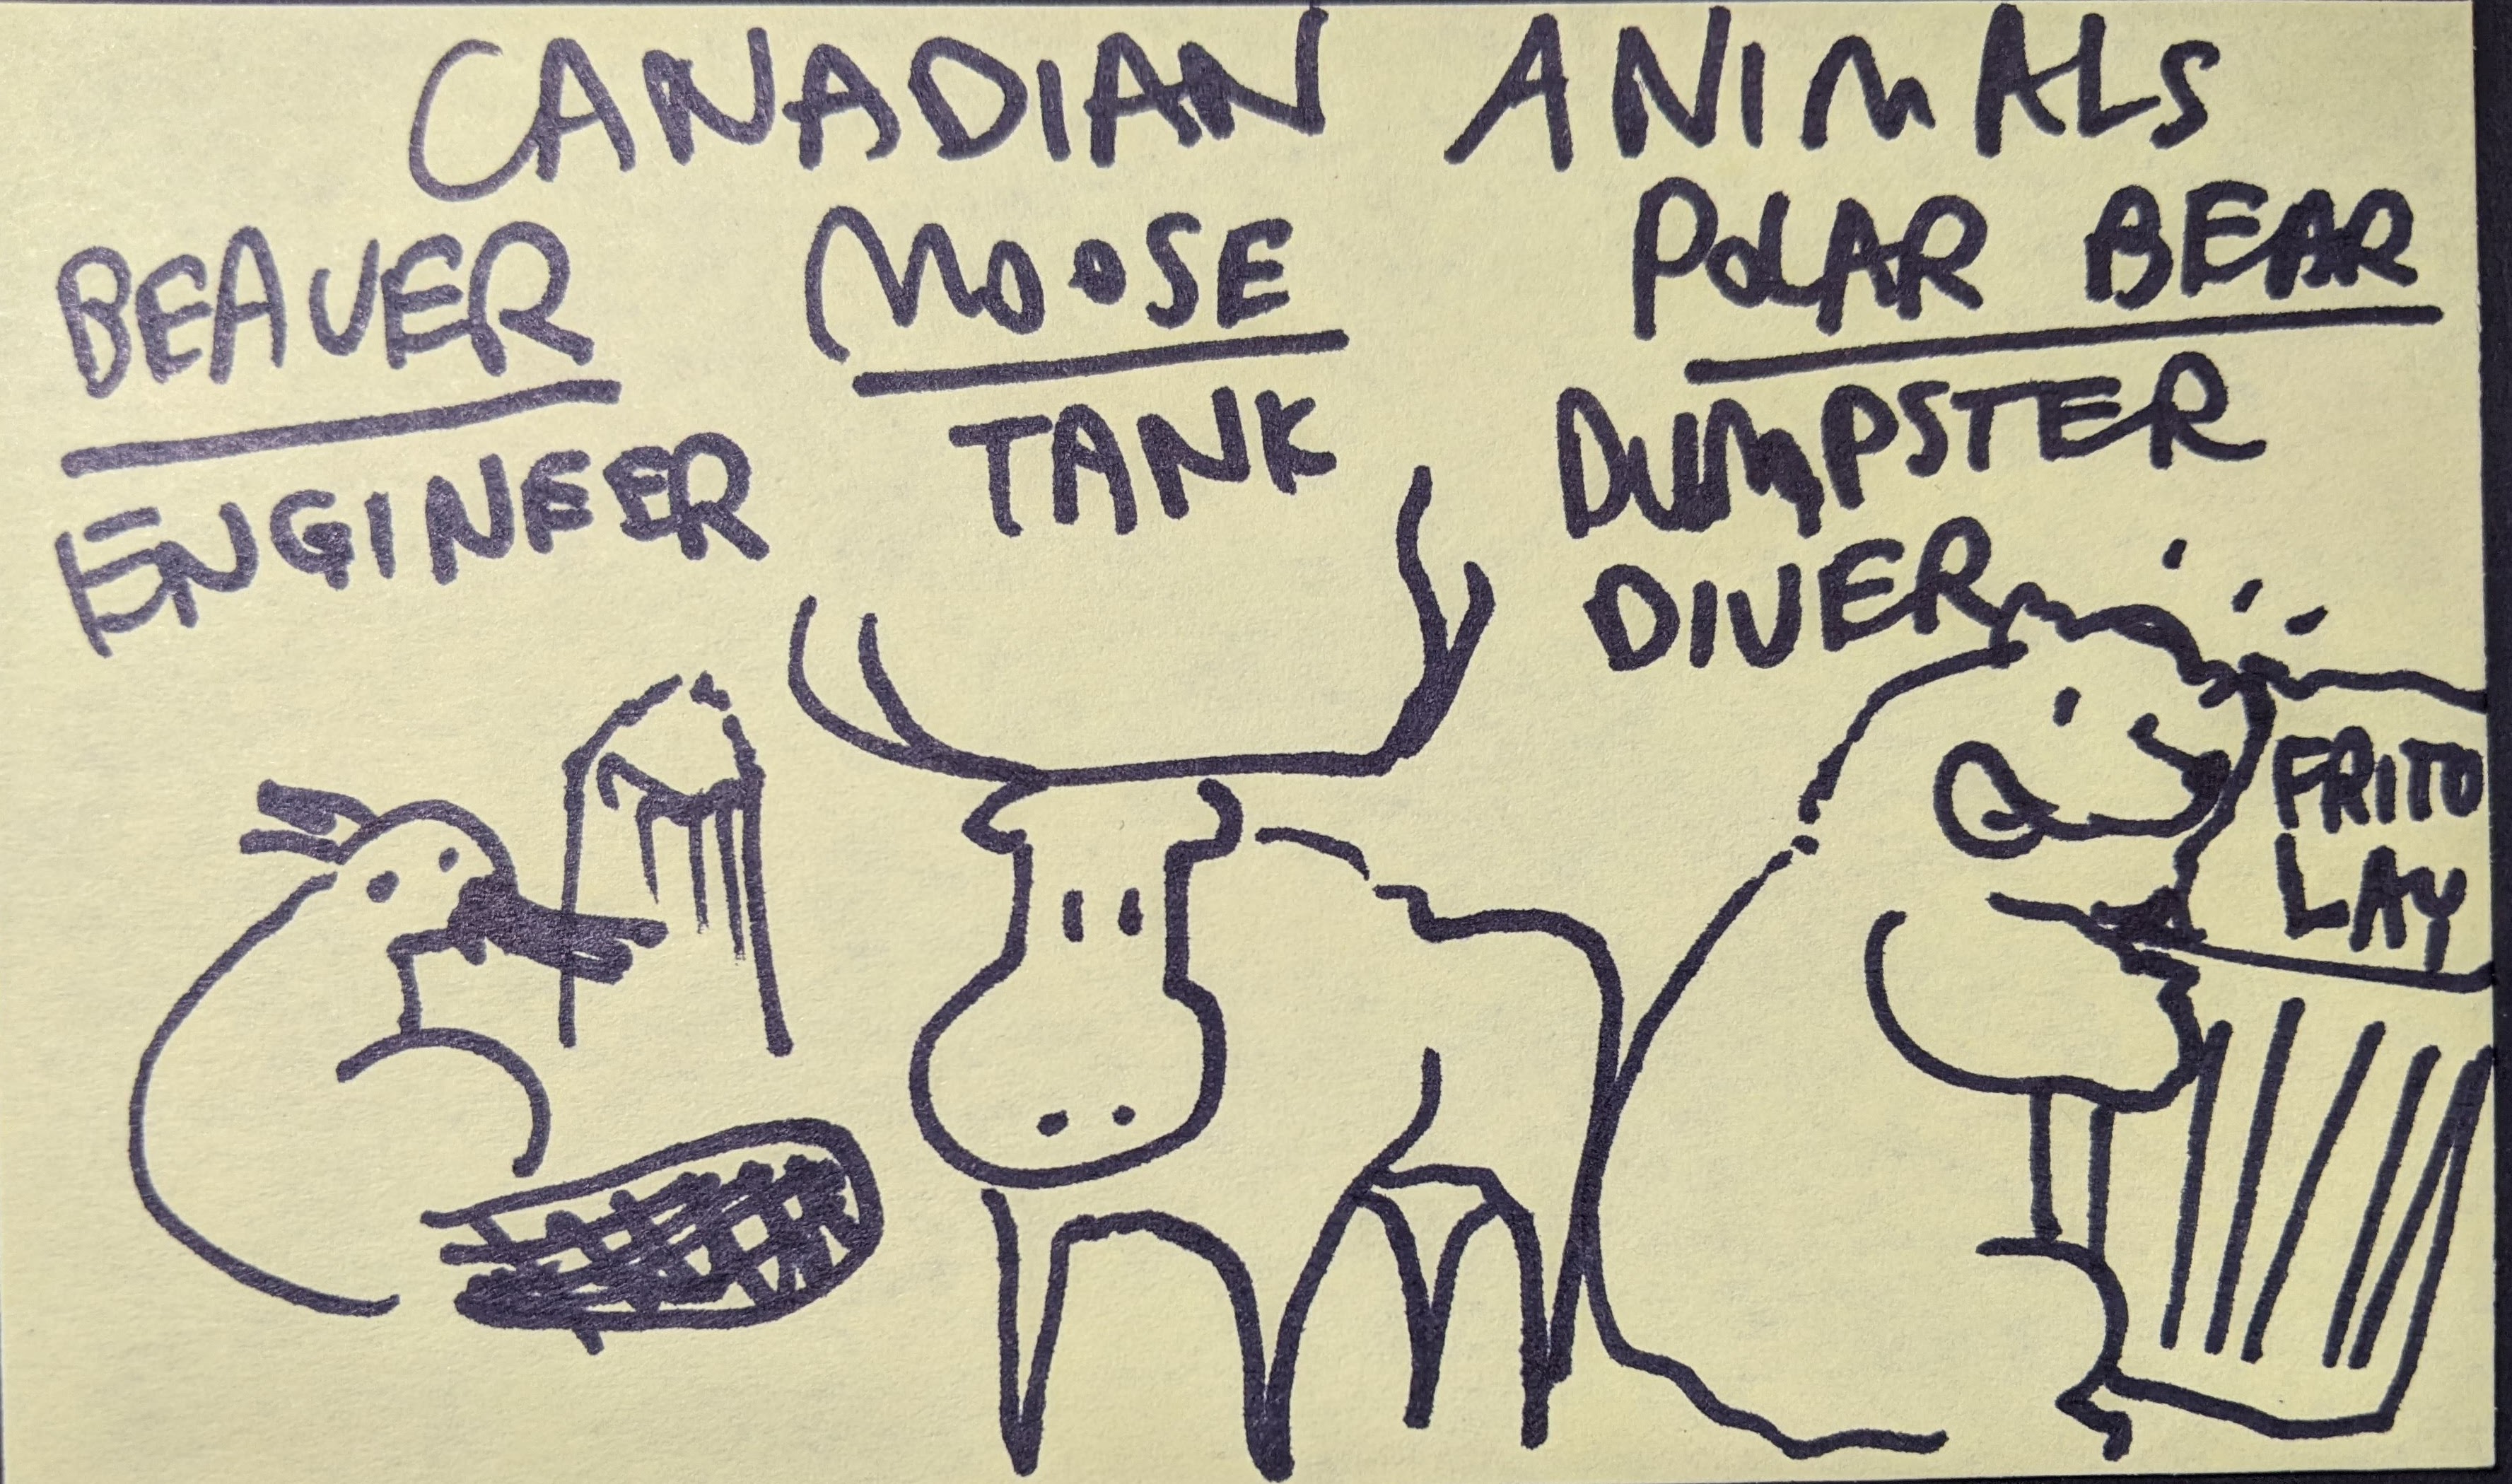 CANADIAN ANIMALS
BEAVER
ENGINEER
MOOSE
TANK
POLAR BEAR
DUMPSTER
DIVER
FRITO
LAY